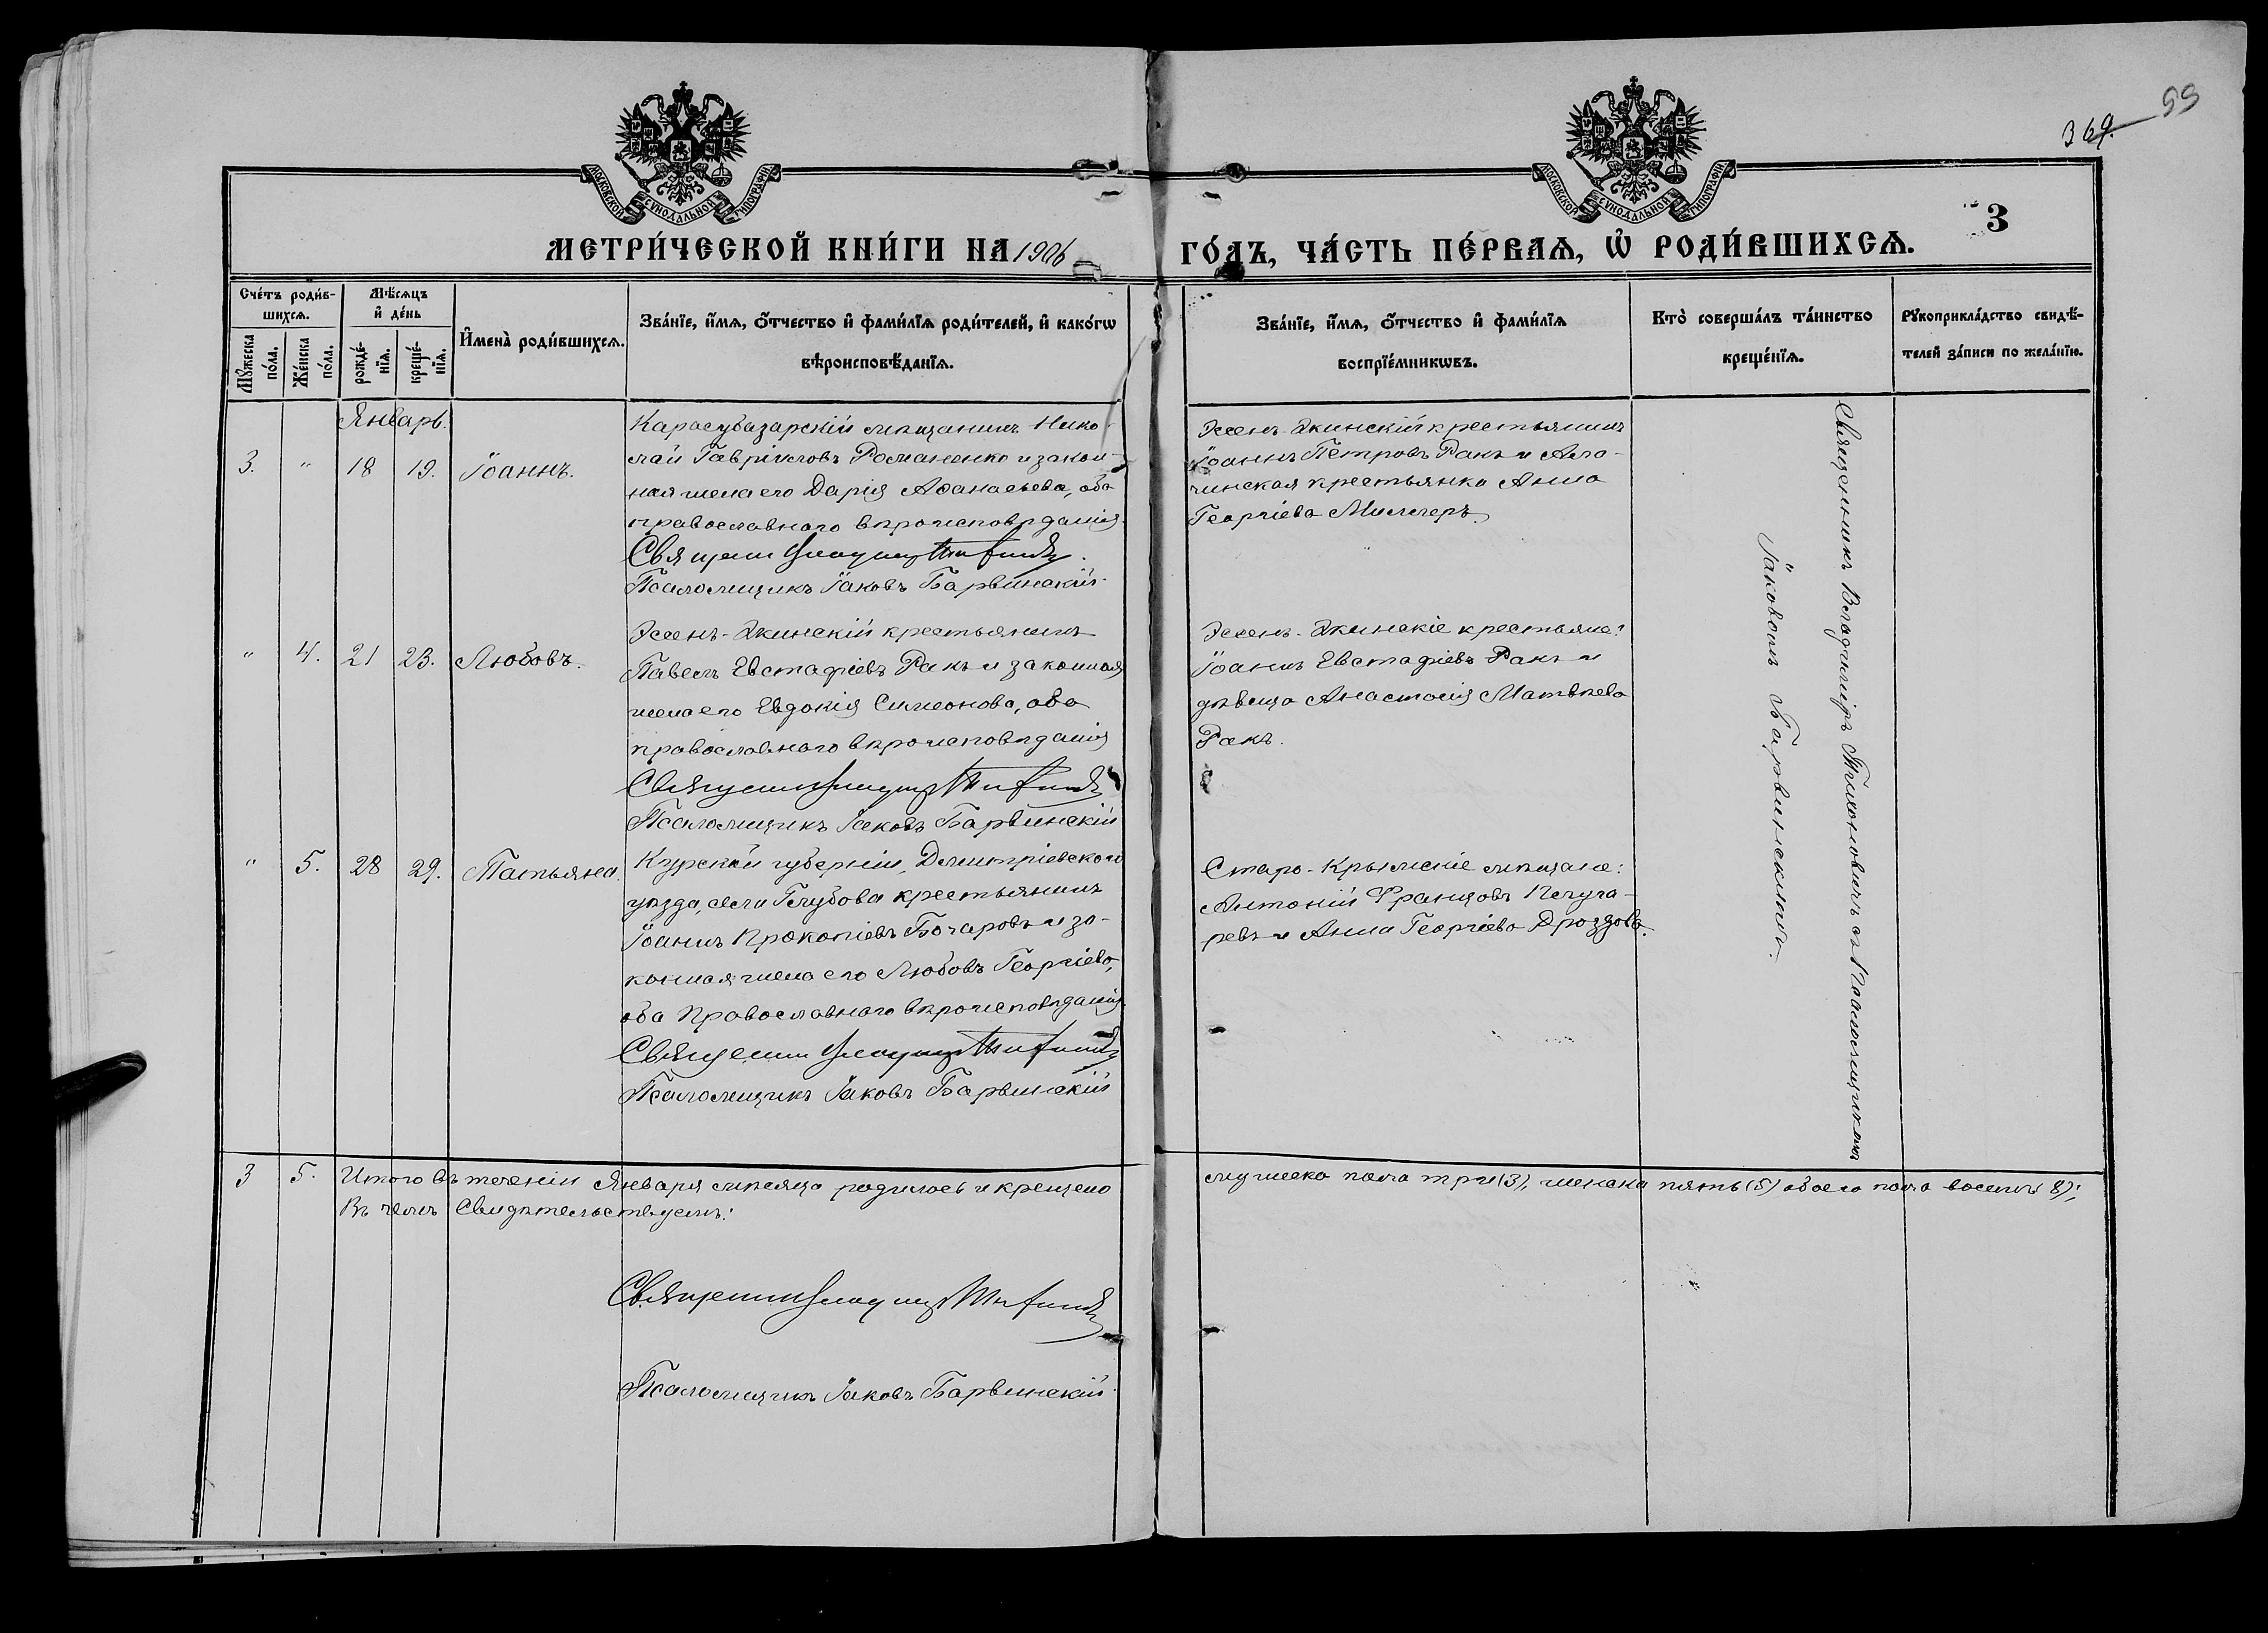 59
369.
3
МОСКОВСКОЙ СѴНОДАЛЬНОЙ ТИПОГРАФІИ
МОСКОВСКОЙ СѴНОДАЛЬНОЙ ТИПОГРАФІИ
МЕТРИ́ЧЕСКОЙ КНИ́ГИ НА 1906 ГО́ДЪ, ЧА́СТЬ ПЕ́РВАѦ, Ѡ РОДИ́ВШИХСѦ.
Сче́тъ роди́вшихсѧ.
Мꙋ́жеска по́ла.
Же́нска по́ла.
Мѣ́сѧцъ и де́нь
рожде́нїѧ.
креще́нїѧ.
Имена̀ роди́вшихсѧ.
Зва́нїе, и́мѧ, ѻ́тчество и фами́лїѧ роди́телей, и како́гѡ
вѣроисповѣ́данїѧ.
Зва́нїе, и́мѧ, ѻ́тчество и фами́лїѧ
воспрїе́мникѡвъ.
Кто̀ соверша́лъ та́инство
креще́нїѧ.
Рꙋкоприкла́дство свидѣ́-
телей за́писи по жела́нїю.
Январь.
3. " 18 19. Іоаннъ.
Карасубазарскій мѣщанинъ Нико-
лай Гавріиловъ Романенко и закон-
ная жена его Дарія Аѳанасьева, оба
православнаго вѣроисповѣданія.
Священн Владимір
Псаломщикъ Іаковъ Барвинскій.
Эссенъ-Экинскій крестьянинъ
Іоаннъ Петровъ Ракъ и Ала-
чинская крестьянка Анна
Георгіева Миллеръ.
" 4. 21 23. Любовь.
Эссенъ-Экинскій крестьянинъ
Павелъ Евстафіевъ Ракъ и законная
жена его Евдокія Симеонова, оба
православнаго вѣроисповѣданія
Священн Владимір
Псаломщикъ Іаковъ Барвинскій
Эссенъ-Экинскіе крестьяне:
Іоаннъ Евстафіевъ Ракъ и
дѣвица Анастасія Матвѣева
Ракъ.
" 5. 28 29. Татьяна.
Курской губерніи, Дмитріевскаго
уѣзда, села Глубова крестьянинъ
Іоаннъ Прокопіевъ Бочаровъ и за-
конная жена его Любовь Георгіева,
оба Православнаго вѣроисповѣданія.
Священн Владимір
Псаломщикъ Іаковъ Барвинскій
Старо-Крымскіе мѣщане:
Антоній Францовъ
и Анна Георгіева Дроздова.
Священникъ Владиміръ Тихоновичъ съ Псаломщикомъ
Іаковомъ Барвинскимъ.
3 5. Итого въ теченіи Января мѣсяца родилось и крещено мужеска пола три (3), женска пять (5) обоего пола восемь (8);
Въ чемъ Свидѣтельствуемъ:
Священн Владимір
Псаломщикъ Іаковъ Барвинскій.